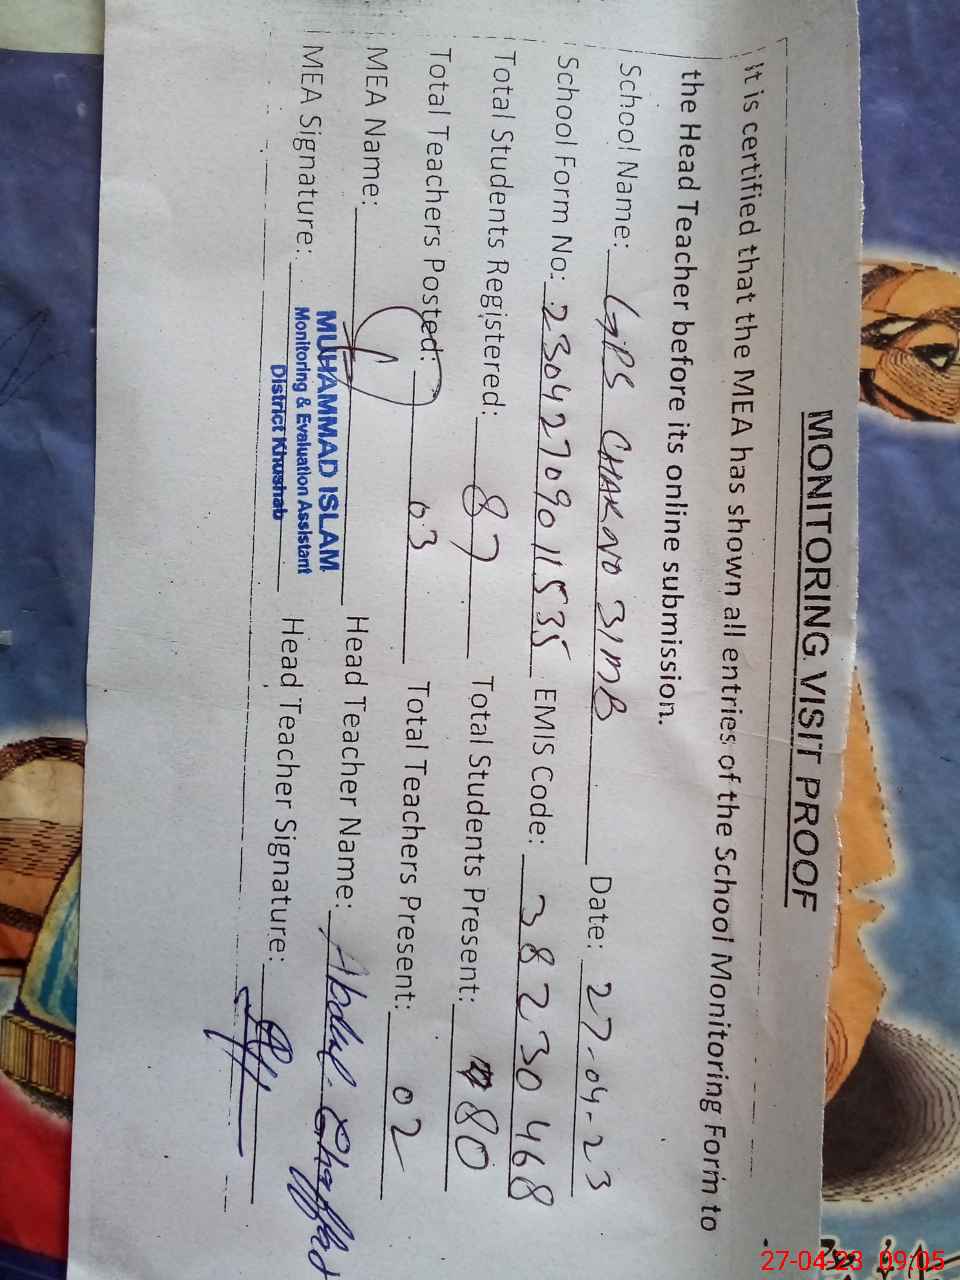 MONITORING VISIT PROOF
It is certified that the MEA has shown all entries of the School Monitoring Form to
the Head Teacher before its online submission.
School Name: GPS CHAK NO 31MB Date: 27-04-23
School Form No: 23042709011535 EMIS Code: 38230468
Total Students Registered: 87 Total Students Present: 80
Total Teachers Posted: 03 Total Teachers Present: 02
MEA Name: Head Teacher Name: Abdul Ghaffar
MEA Signature: Head Teacher Signature:
MUHAMMAD ISLAM
Monitoring & Evaluation Assistant
District Khushab
27-04-23 09:05